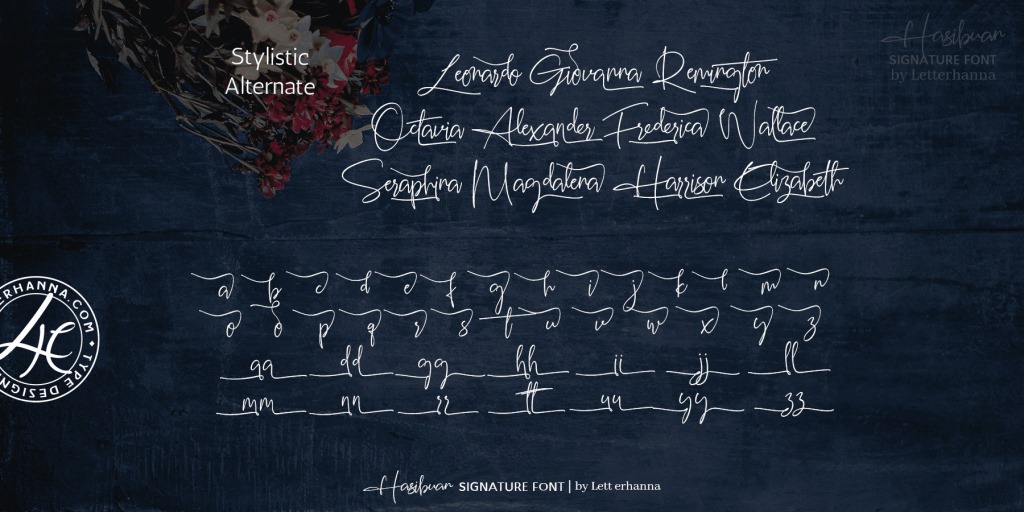 Stylistic
Alternate
Hasibuan
SIGNATURE FONT
by Letterhanna
Leonardo Giovanna Remington
Octavia Alexander Frederica Wallace
Seraphina Magdalena Harrison Elizabeth
a b c d e f g h i j k l m n
o o p q r s t u v w x y z
aa dd gg hh ii jj ll
mm nn rr tt uu yy zz
ERHANNA.COM • TYPE DESIGN
LH
Hasibuan SIGNATURE FONT | by Lett erhanna